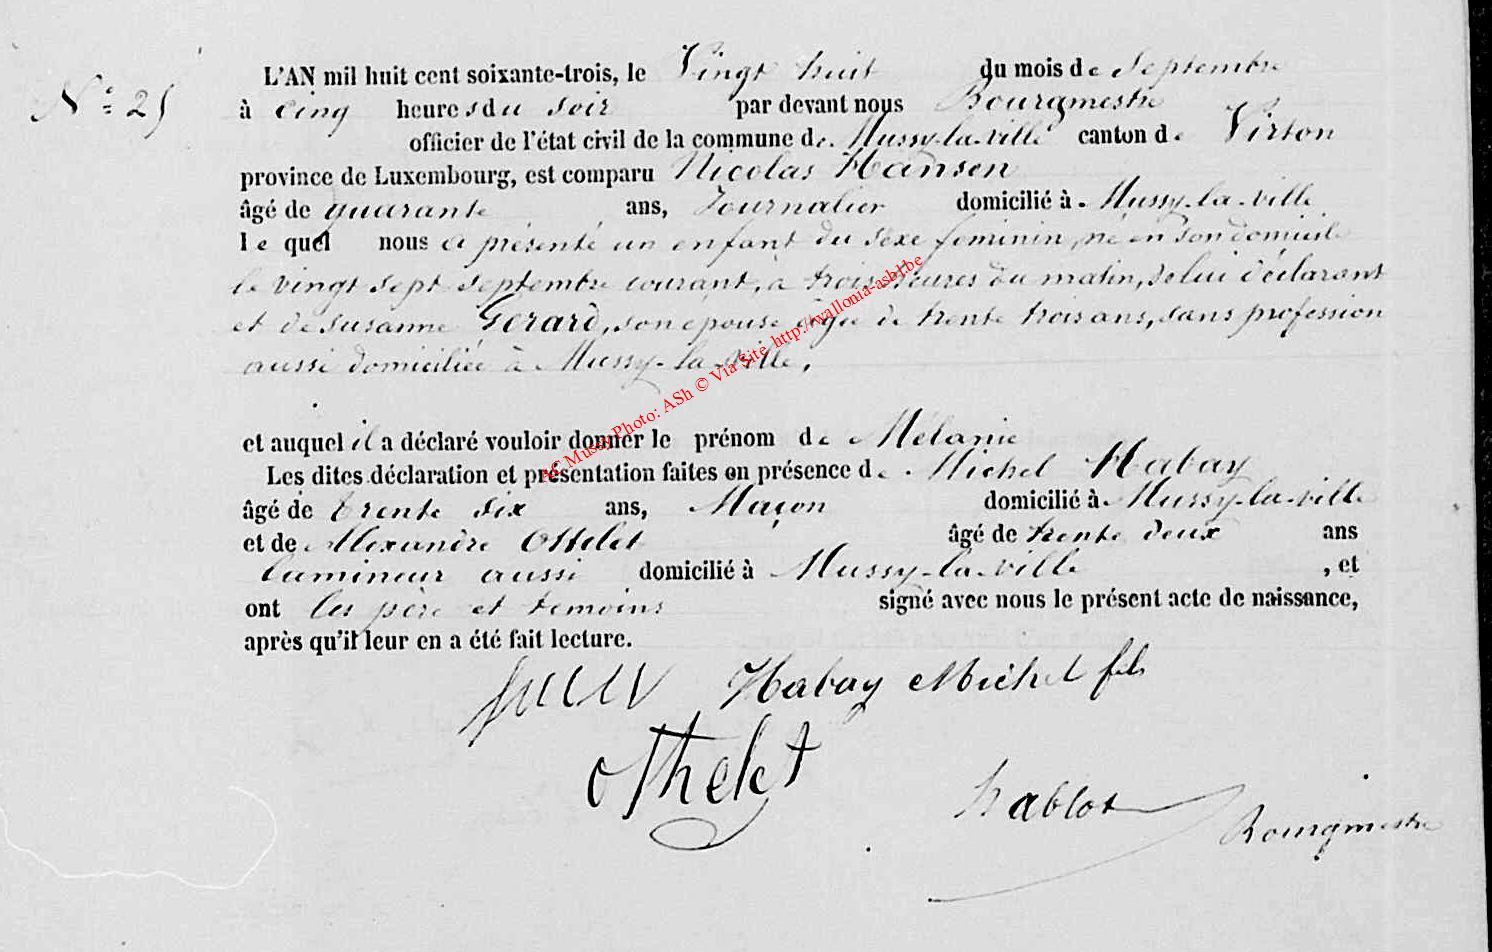 N° 25
L'AN mil huit cent soixante-trois, le Vingt huit du mois de Septembre
à cinq heures du soir par devant nous Bourgmestre
officier de l'état civil de la commune de Mussy-la-ville canton de Virton
province de Luxembourg, est comparu Nicolas Hansen
âgé de quarante ans, Journalier domicilié à Mussy-la-ville
le quel nous a présenté un enfant du sexe feminin, né en son domicile
le vingt sept septembre courant, à trois heures du matin, de lui déclarant
et de Susanne Gerard, son epouse âgée de trente trois ans, sans profession
aussi domiciliée à Mussy-la-ville,
et auquel il a déclaré vouloir donner le prénom de Mélanie
Les dites déclaration et présentation faites en présence de Michel Habay
âgé de trente six ans, Maçon domicilié à Mussy-la-ville
et de Alexandre Ottelet âgé de trente deux ans
lamineur aussi domicilié à Mussy-la-ville, et
ont les père et temoins signé avec nous le présent acte de naissance,
après qu'il leur en a été fait lecture.
Habay Michel fils
Othelet
hablot Bourgmestre
AC Mussy Photo: ASh © Via Site http://wallonia-asbl.be